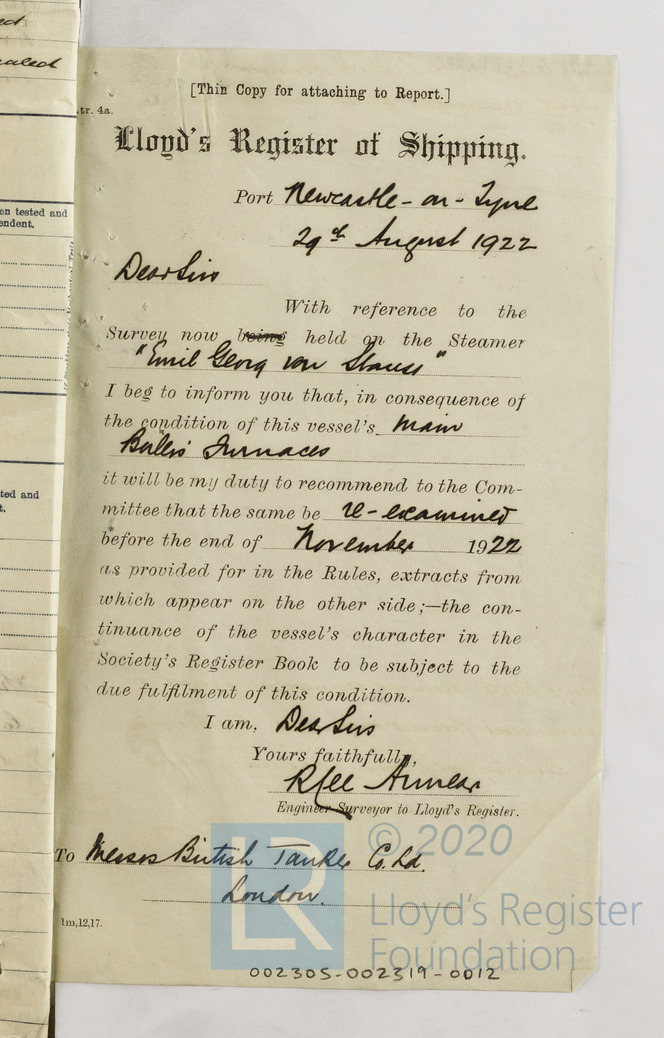 ed
ealed
[Thin Copy for attaching to Report.]
tr. 4a.
Lloyd's Register of Shipping.
Port Newcastle-on-Tyne
29th August 1922
en tested and
endent.
Dear Sirs
With reference to the
Survey now being held on the Steamer
"Emil Georg von Strauss"
I beg to inform you that, in consequence of
the condition of this vessel's main
Boilers' Furnaces
it will be my duty to recommend to the Com-
ted and
t.
mittee that the same be re-examined
before the end of November 1922
as provided for in the Rules, extracts from
which appear on the other side;—the con-
tinuance of the vessel's character in the
Society's Register Book to be subject to the
due fulfilment of this condition.
I am, Dear Sirs
Yours faithfully,
Engineer Surveyor to Lloyd's Register.
To Messrs British Tanker Co. Ld.
London.
1m,12,17.
LR
© 2020
Lloyd's Register
Foundation
002305-002319-0012